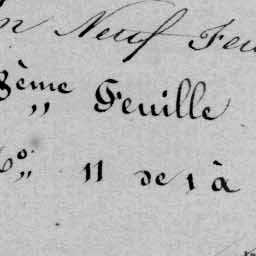 en Neuf Feu
8ème Feuille
,, 11 de 1 à